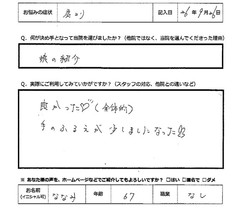 お悩みの症状 肩こり 記入日 26年9月26日
Q. 何が決め手となって当院を選びましたか?(他院ではなく、当院を選んでくださった理由)
娘の紹介
Q. 実際にご利用してみていかがですか?(スタッフの対応、他院との違いなど)
良かった♡(全体的)
手のふるえが少しましになった
※ あなた様の声を、ホームページなどでご紹介してもよろしいですか? □はい □匿名で □ダメ
お名前(イニシャル可) 年齢 67 職業 なし